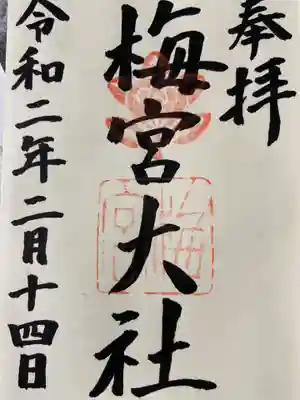 奉拝
梅宮大社
梅宮
令和二年二月十四日